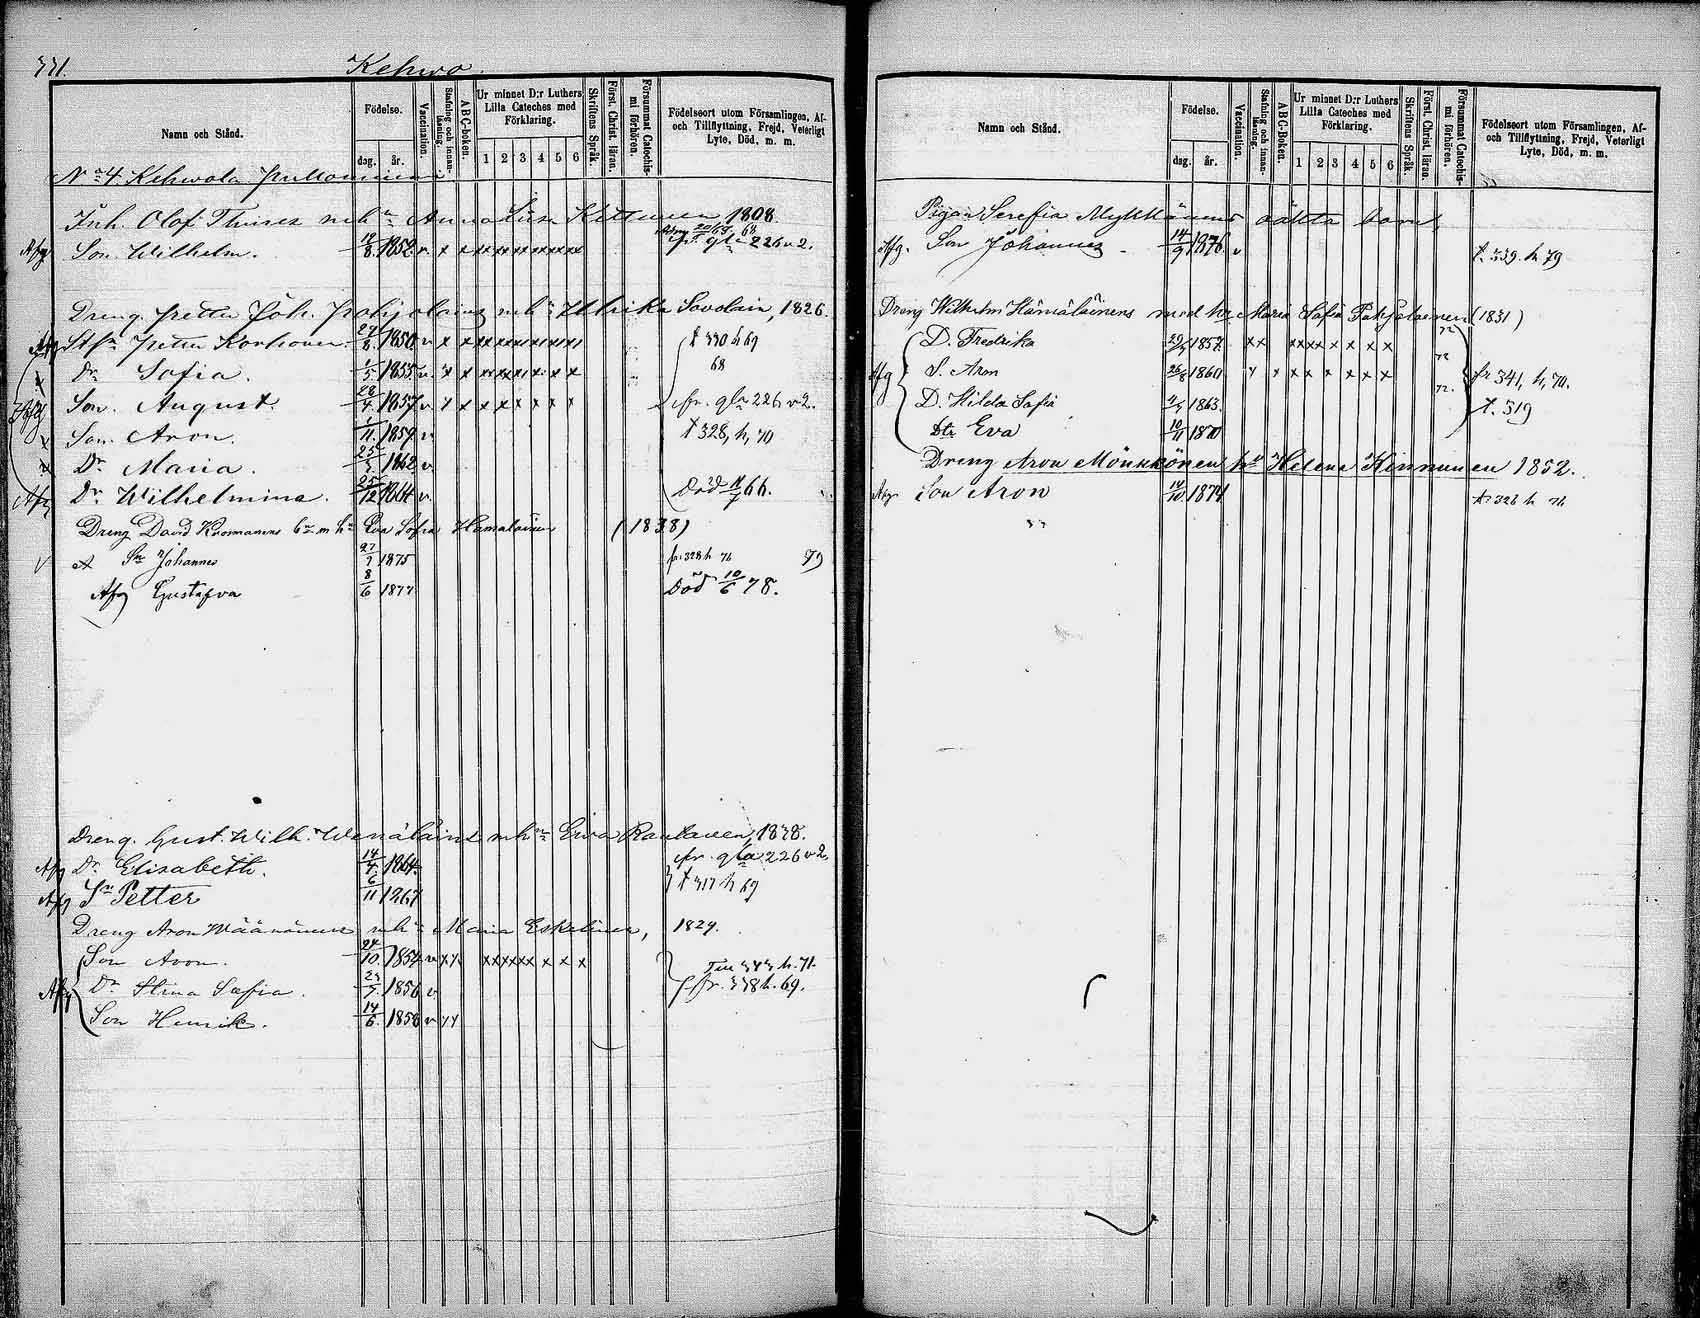 331. Kehwo.
Namn och Stånd. Födelse. dag. år. Vaccination. Stafning och innanläsning. ABC-boken. Ur minnet D:r Luthers Lilla Cateches med Förklaring. 1 2 3 4 5 6 Skriftens Språk. Först. Christ. läran. Försummat Catechismi förhören. Födelseort utom Församlingen, Af- och Tillflyttning, Frejd, Veterligt Lyte, Död, m. m.
No 4 Kehwola
Inh. Olof Thures mhu Anna Lisa Kettunen 1808.
Afg Son Wilhelm. 18/8 1852. v x x xxxxxxxxx fr. gla 226 v 2.
Dreng. Petter Joh. Pohjolains mhu Ulrika Savolain, 1826.
Afg Petter Korhonen. 27/8 1850 v x x xxxxxxxx t 330 h 69
x Dr Sofia. 1/5 1855 v x x xx xx x x x 68
Afg Son. August. 28/4 1857 v x x x x x x x x fr. gla 226 v 2.
x Son. Aron. 1/11 1859 v t 328, h, 70
x Dr Maria. 25 1862 v
Afg Dr Wilhelmina. 25/12 1864 v. död 66.
Dreng David m hu Eva Sofia Hämäläinen (1838)
v A Sn Johannes 27/7 1875 fr. 328 h 76 79
Afg Gustafva 8/6 1877 död 10/6 78.
Dreng. Gust. Wilh. Wenäläins mhu Ewa Rautanen, 1838.
Afg Dr Elisabeth. 14/4 1864. fr. gla 226 v 2
Afg Sn Petter 6/11 1867 t 317 h 69
Dreng Aron Wäänänens mhu Maria Eskelinen, 1829.
Son Aron. 24/10 1854 v x x xxxxxx x x x Till 343 h. 71.
Afg Dr Stina Sofia. 23 1856 v fr. 338 h. 69.
Son Henrik. 14/6 1858 v x x
Namn och Stånd. Födelse. dag. år. Vaccination. Stafning och innanläsning. ABC-boken. Ur minnet D:r Luthers Lilla Cateches med Förklaring. 1 2 3 4 5 6 Skriftens Språk. Först. Christ. läran. Försummat Catechismi förhören. Födelseort utom Församlingen, Af- och Tillflyttning, Frejd, Veterligt Lyte, Död, m. m.
Pigan Serefia Mykkänens oäkta barn,
Afg. Son Johannes 14/9 1876. v t. 339. h 79
Dreng Wilhelm Hämäläinens med hu Maria Sofia Pohjolainen (1831)
D. Fredrika 29 1857. x x xxxx x x x x 72
Afg S. Aron 26/8 1860 x x x x x x x x 72 fr 341, h, 70.
D. Hilda Sofia 1863. 72. t. 319
Dtr Eva 10/11 1870
Dreng Aron Mönkkönen hu Helena Kinnunen 1852.
Afg Son Aron 14/10 1874 fr 328 h 76